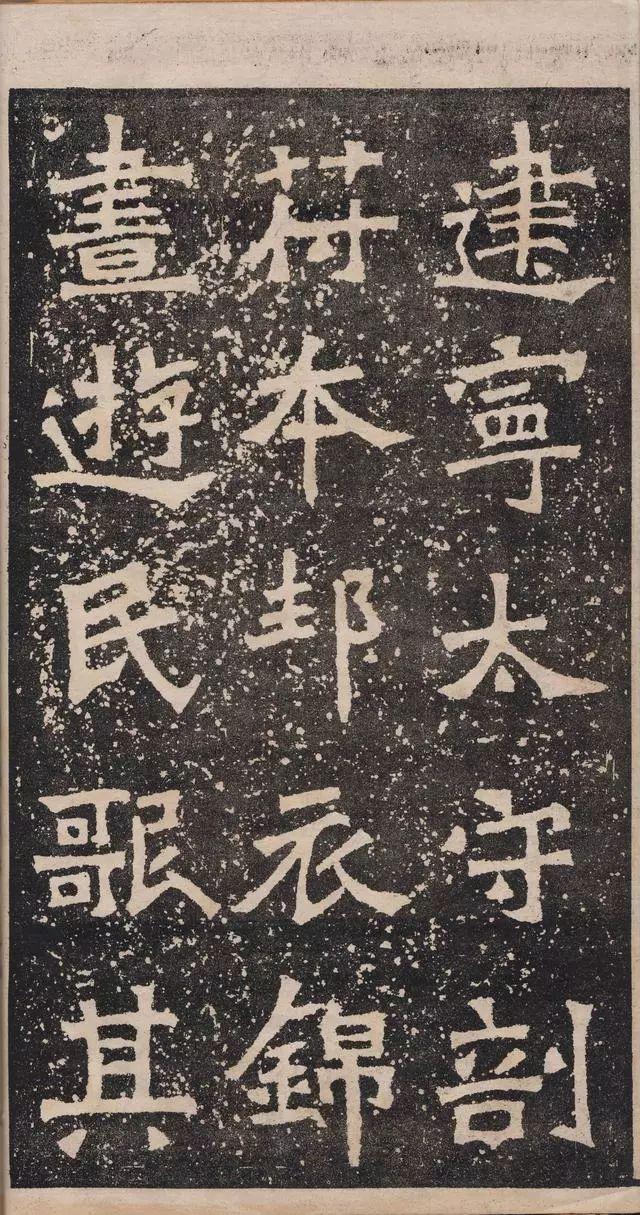 建寧太守剖
苻本邦衣錦
晝遊民歌其